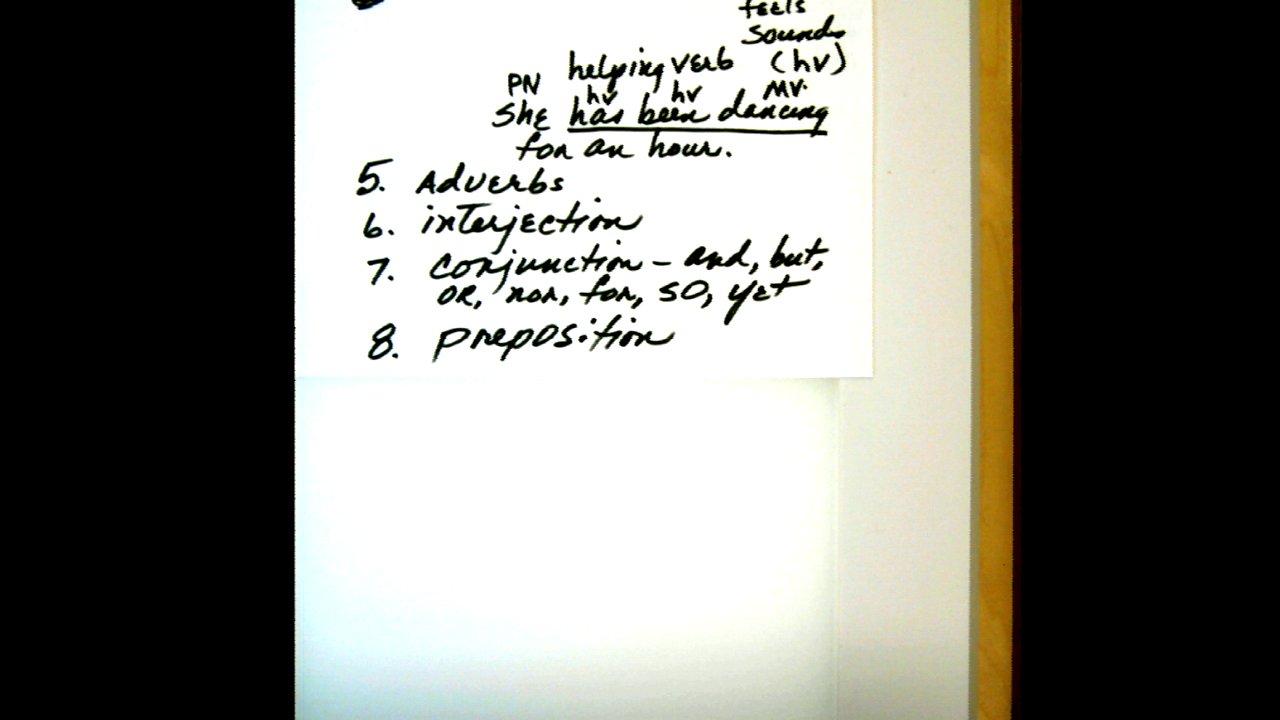 feels
sounds
helping verb (hv)
PN hv hv mv.
She has been dancing
for an hour.
5. Adverbs
6. interjection
7. conjunction - and, but,
OR, nor, for, so, yet
8. preposition